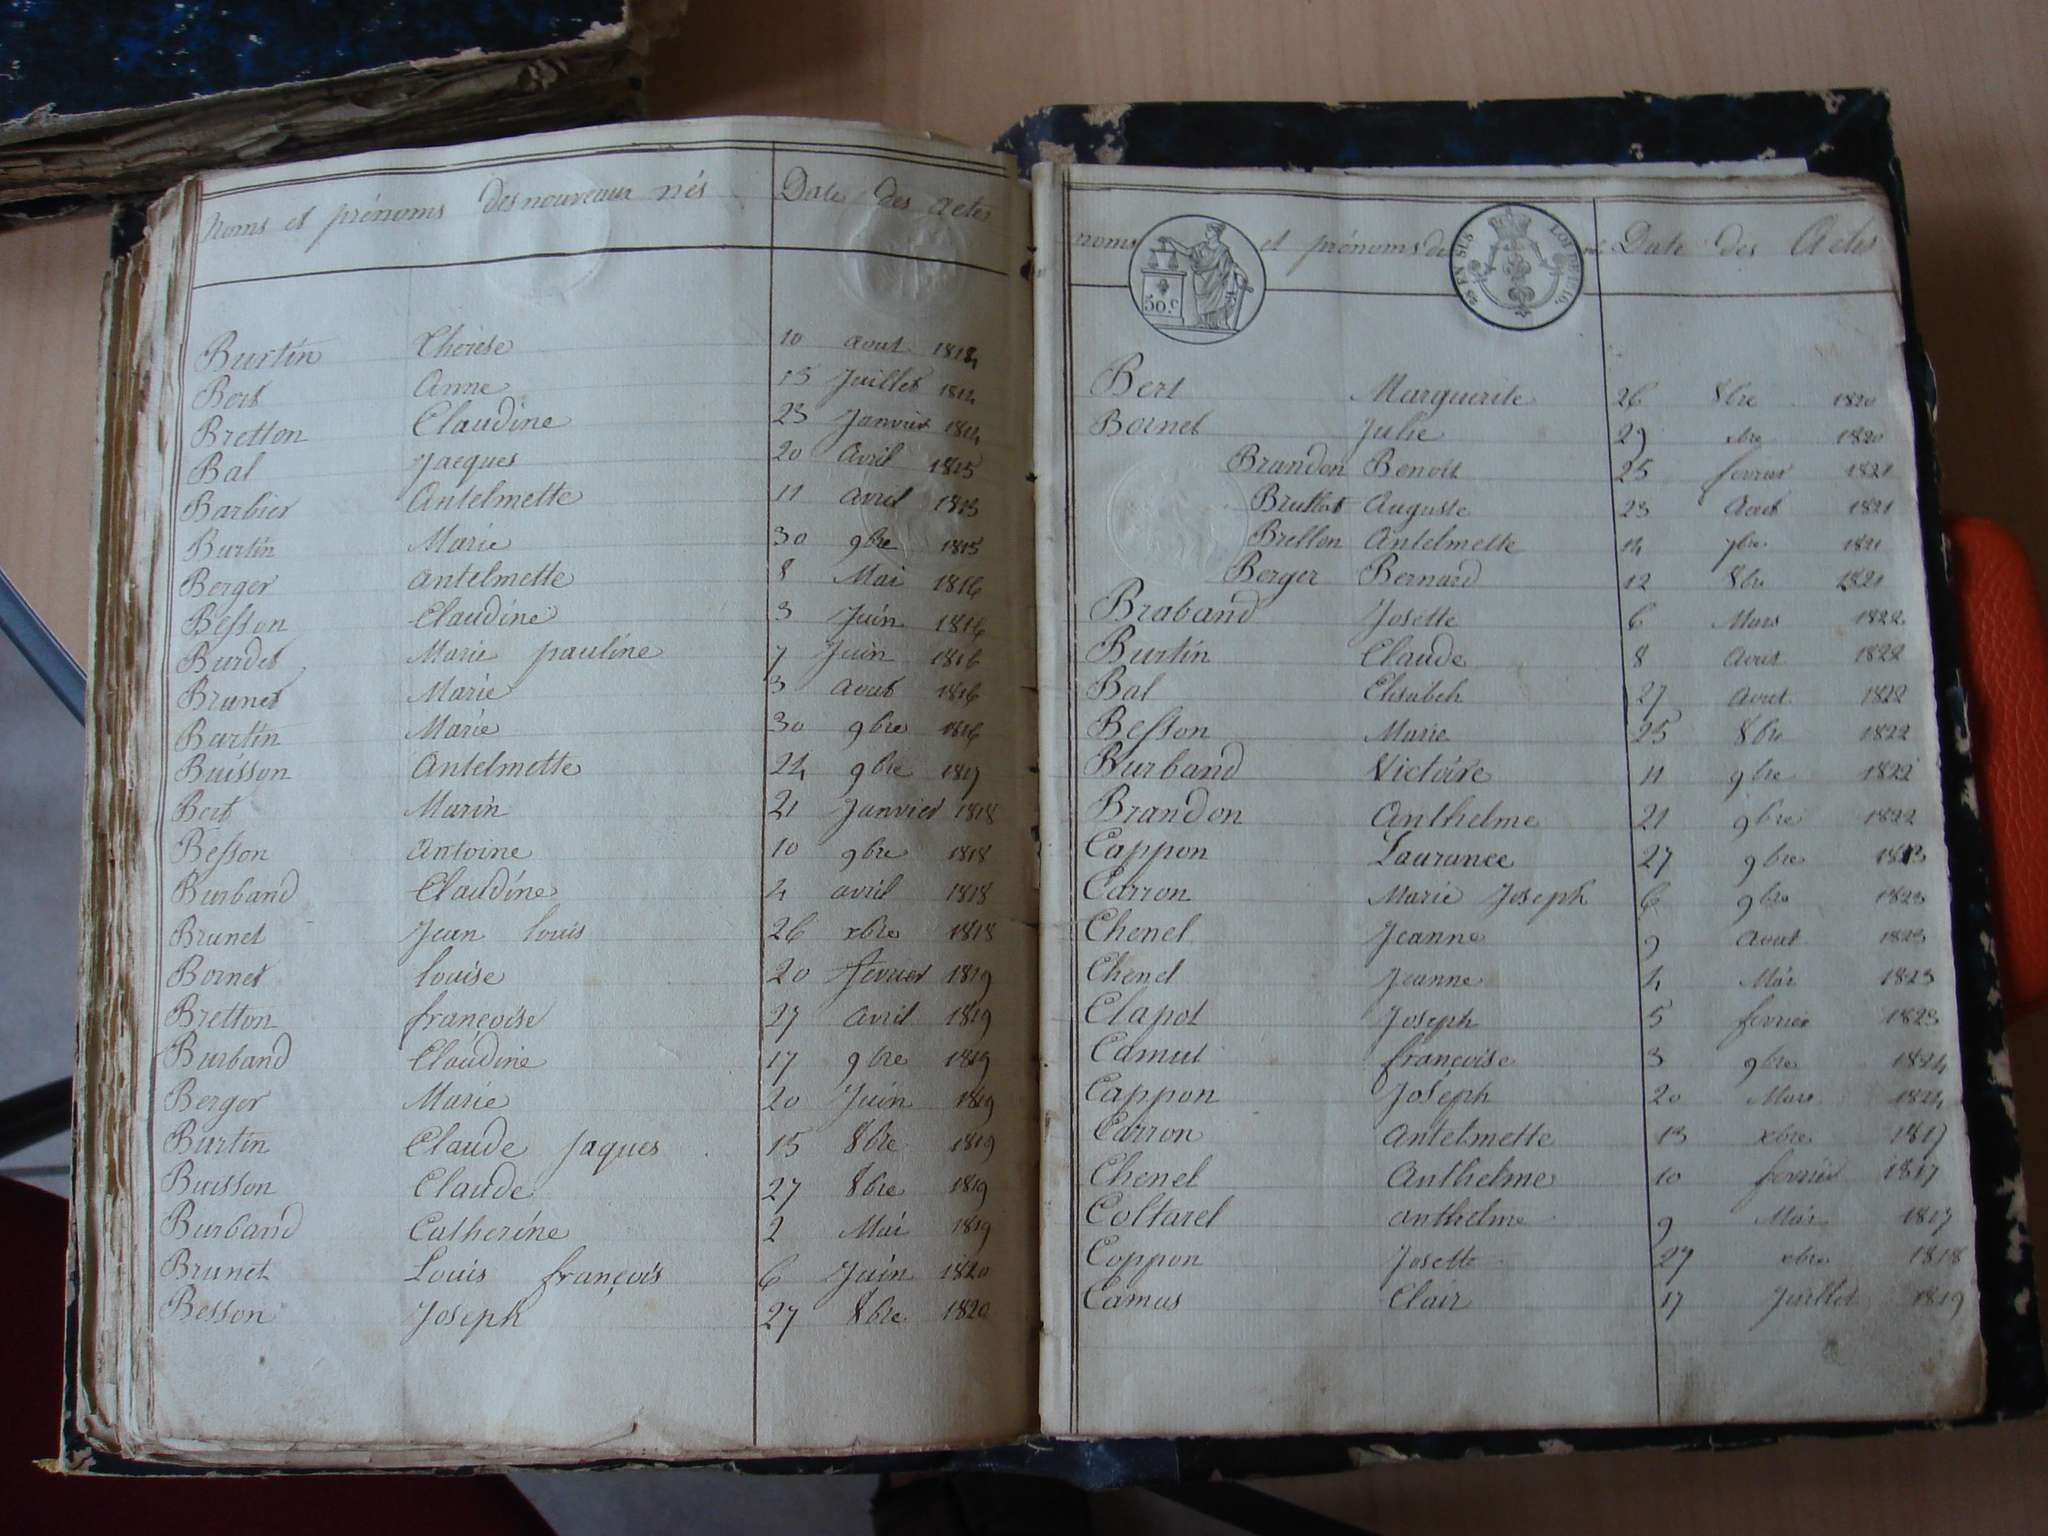 Noms et prénoms des nouveaux nés Date des actes
Burtin Thérèse 10 aout 1814
Bert Anne 15 Juillet 1814
Bretton Claudine 23 Janvier 1814
Bal Jacques 20 avril 1815
Barbier Antelmette 11 avril 1815
Burtin Marie 30 9bre 1815
Berger antelmette 8 Mai 1816
Besson Claudine 3 Juin 1816
Burdet Marie pauline 7 Juin 1816
Brunet Marie 3 aout 1816
Burtin Marie 30 9bre 1816
Buisson Antelmette 24 9bre 1817
Bert Marin 21 Janvier 1818
Besson Antoine 10 9bre 1818
Burband Claudine 4 avril 1818
Brunet Jean louis 26 xbre 1818
Bornet louise 20 fevrier 1819
Bretton françoise 27 avril 1819
Burband Claudine 17 9bre 1819
Berger Marie 20 Juin 1819
Burtin Claude Jaques 15 8bre 1819
Buisson Claude 27 8bre 1819
Burband Catherine 2 Mai 1819
Brunet Louis françois 6 Juin 1820
Besson Joseph 27 8bre 1820
noms et prénoms de Date des Actes
50.c
EN SUS LOI DE 1816.
Bert Marguerite 26 8bre 1820
Bornet Julie 29 xbre 1820
Brandon Benoit 25 fevrier 1821
Bruttot Auguste 23 Aout 1821
Bretton Antelmette 14 7bre 1821
Berger Bernard 12 8bre 1821
Braband Josette 6 Mars 1822
Burtin Claude 8 avril 1822
Bal Elisabeh 27 avril 1822
Besson Marie 25 8bre 1822
Burband Victoire 11 9bre 1822
Brandon Anthelme 21 9bre 1822
Cappon Laurance 27 9bre 1823
Carron Marie Joseph 6 9bre 1823
Chenel Jeanne 9 Aout 1823
Chenel Jeanne 4 Mai 1823
Clapot Joseph 5 fevrier 1823
Camut françoise 3 9bre 1824
Cappon Joseph 20 Mars 1824
Carron Antelmette 13 xbre 1817
Chenel Anthelme 10 fevrier 1817
Coltarel anthelme 9 Mai 1817
Coppon Josette 27 xbre 1818
Camus Clair 17 Juillet 1819